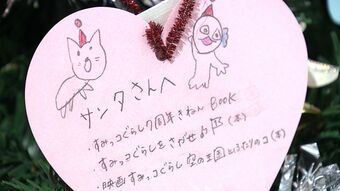 サンタさんへ
・すみっコぐらし7周年きねん BOOK
・すみっコぐらしをさがせ (本)
・映画すみっコぐらし 空の王国とふたりのコ (本)